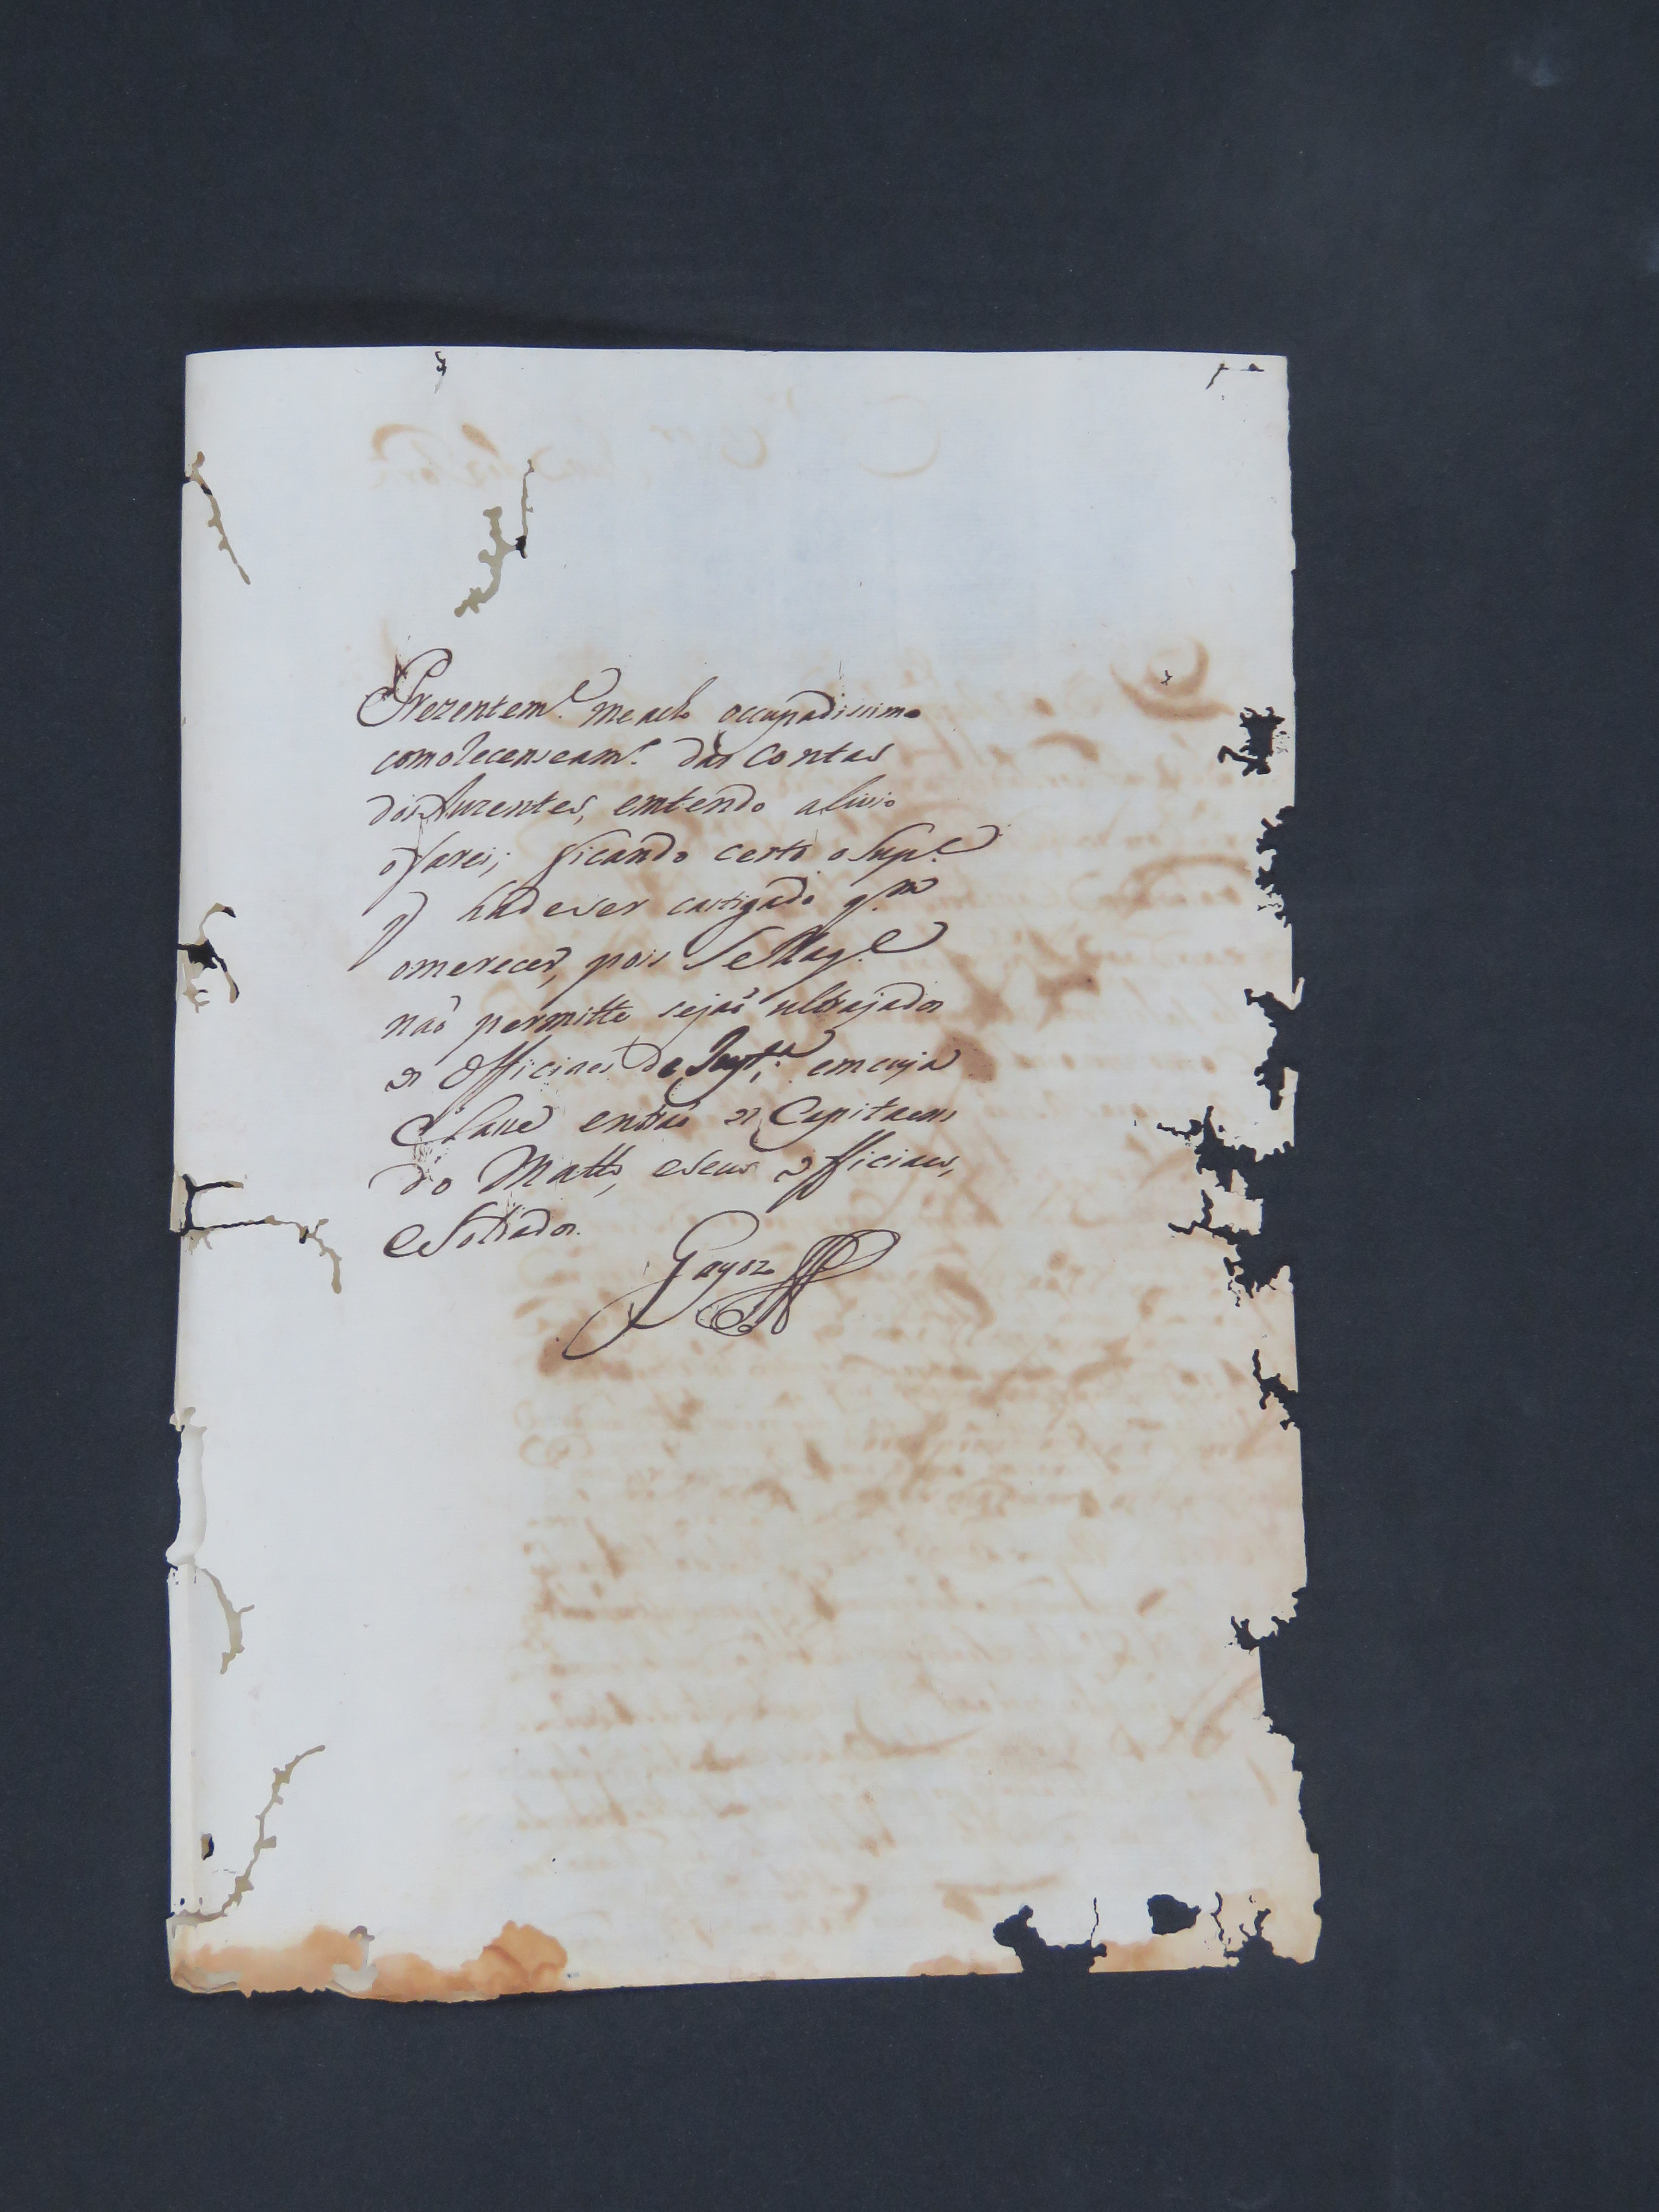 Prezentem.e me acho occupadissimo
como recenseam.to das Contas
dos Auzentes, emtendo alivio
o farei; ficando certo o Sup.e
q hade ser castigado q.m
o merecer, pois Se Mag.e
naõ permitte sejaõ ultrajados
os Officiaes de Just.ça em cuja
Classe entraõ os Capitaens
do Matto, e seus officiaes,
e Soldados.
Gayoz